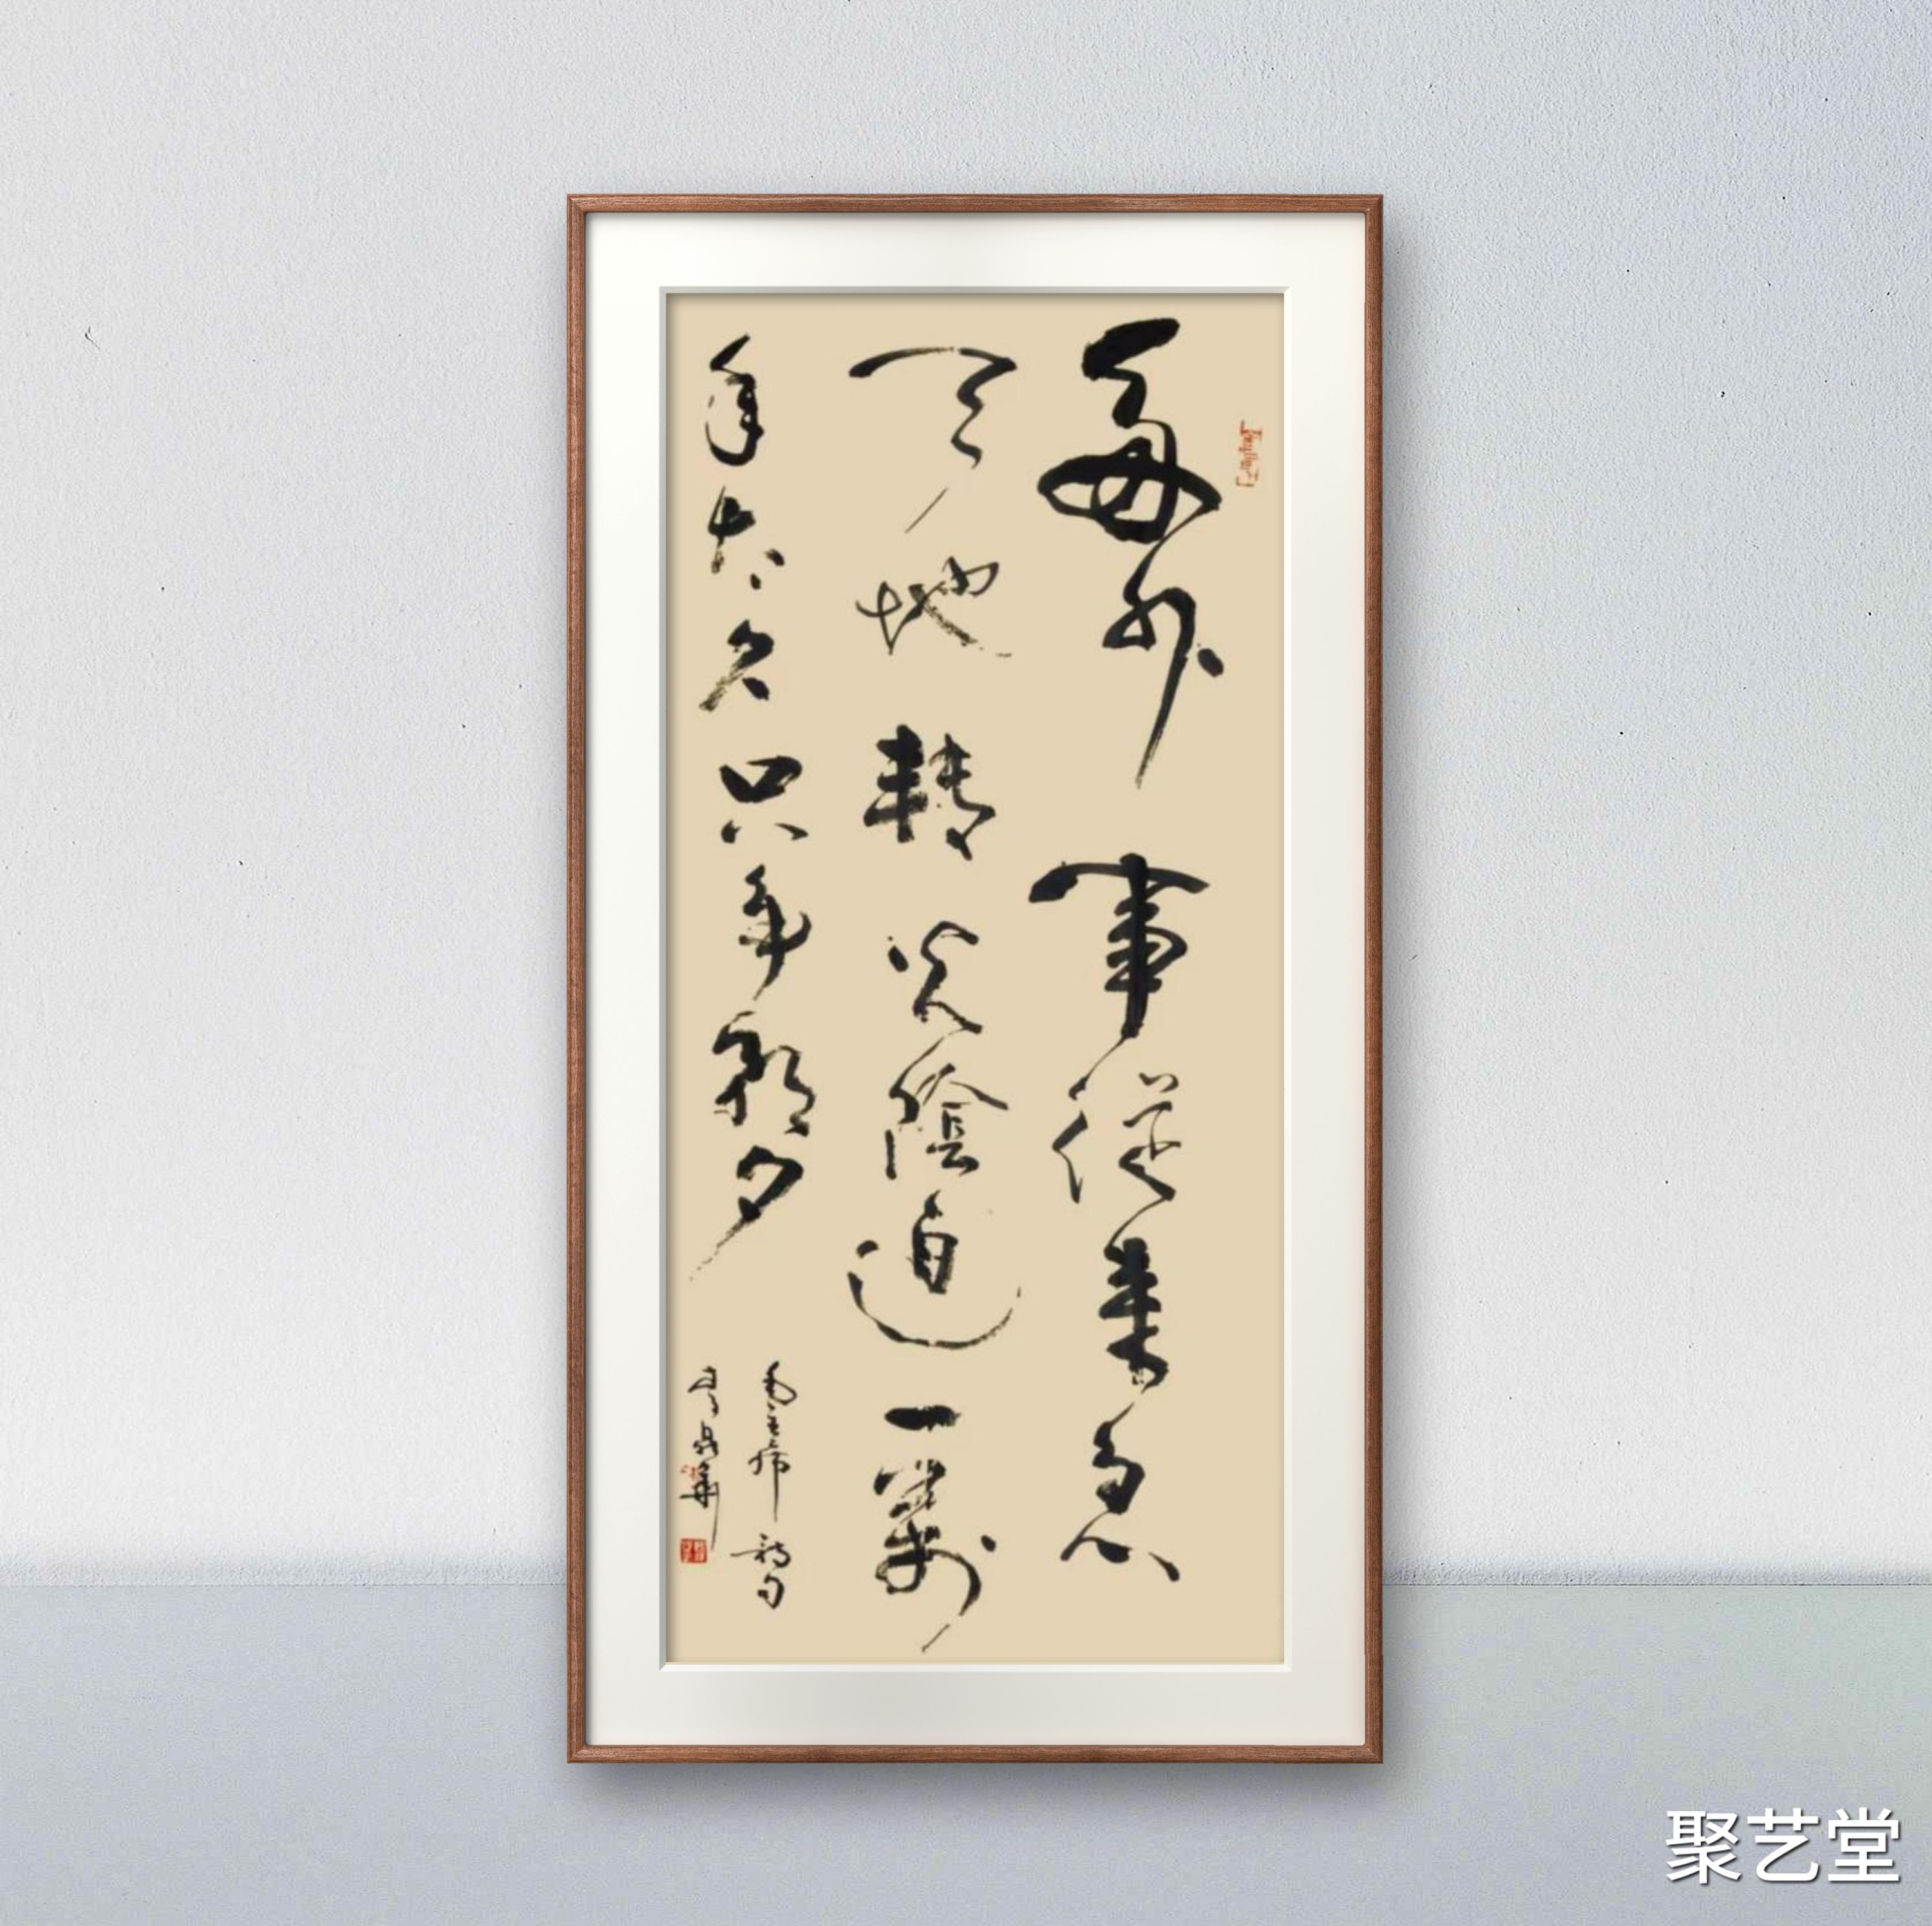 多少事從来急
天地轉光陰迫一萬
年太久只争朝夕
毛主席詩句
聚艺堂